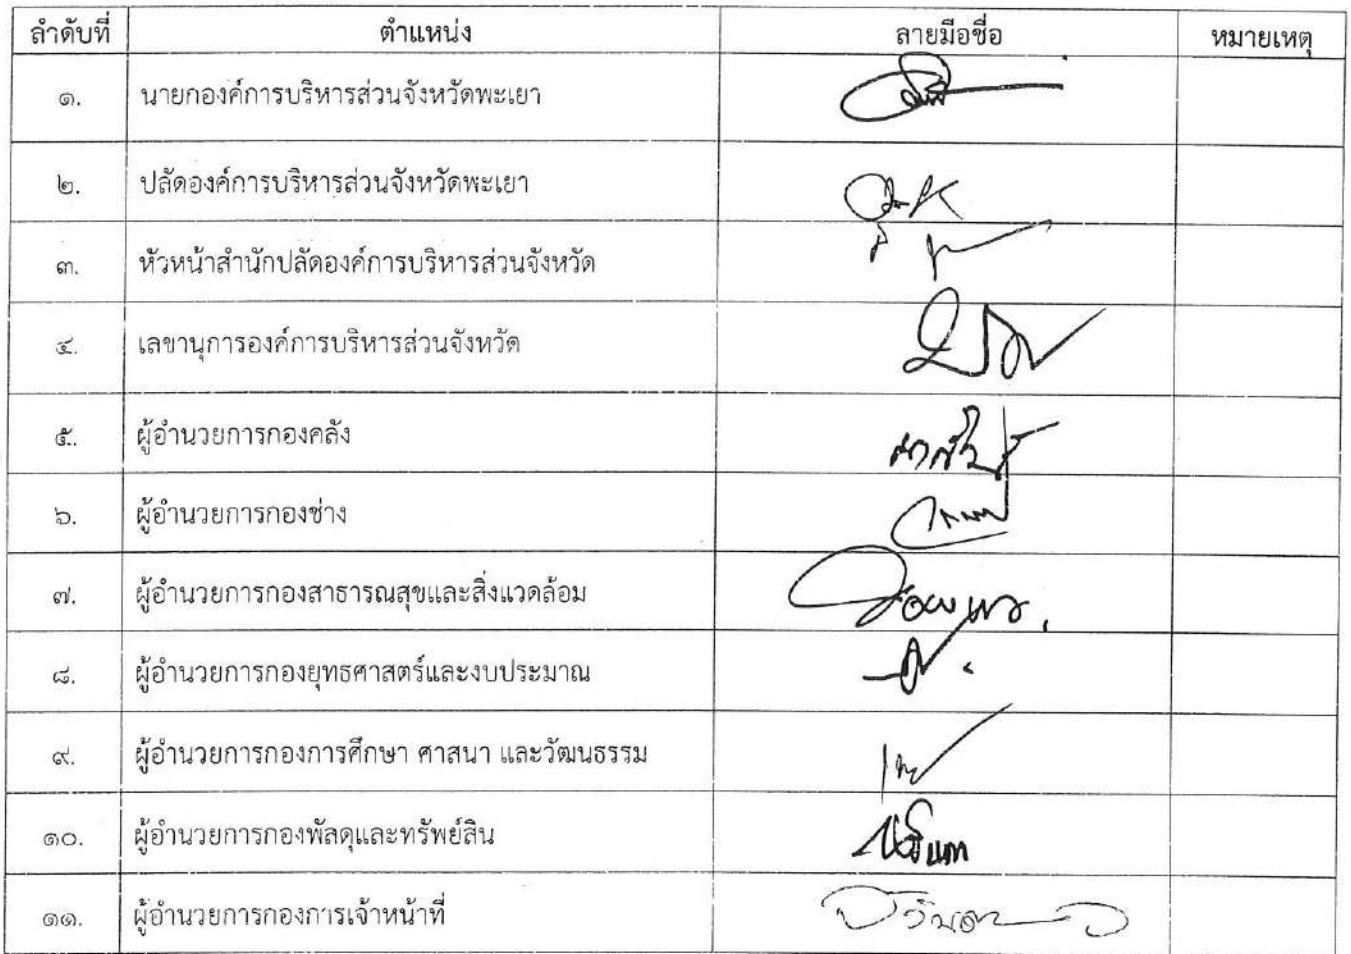 ลำดับที่ ตำแหน่ง ลายมือชื่อ หมายเหตุ
๑. นายกองค์การบริหารส่วนจังหวัดพะเยา
๒. ปลัดองค์การบริหารส่วนจังหวัดพะเยา
๓. หัวหน้าสำนักปลัดองค์การบริหารส่วนจังหวัด
๔. เลขานุการองค์การบริหารส่วนจังหวัด
๕. ผู้อำนวยการกองคลัง
๖. ผู้อำนวยการกองช่าง
๗. ผู้อำนวยการกองสาธารณสุขและสิ่งแวดล้อม
๘. ผู้อำนวยการกองยุทธศาสตร์และงบประมาณ
๙. ผู้อำนวยการกองการศึกษา ศาสนา และวัฒนธรรม
๑๐. ผู้อำนวยการกองพัสดุและทรัพย์สิน
๑๑. ผู้อำนวยการกองการเจ้าหน้าที่